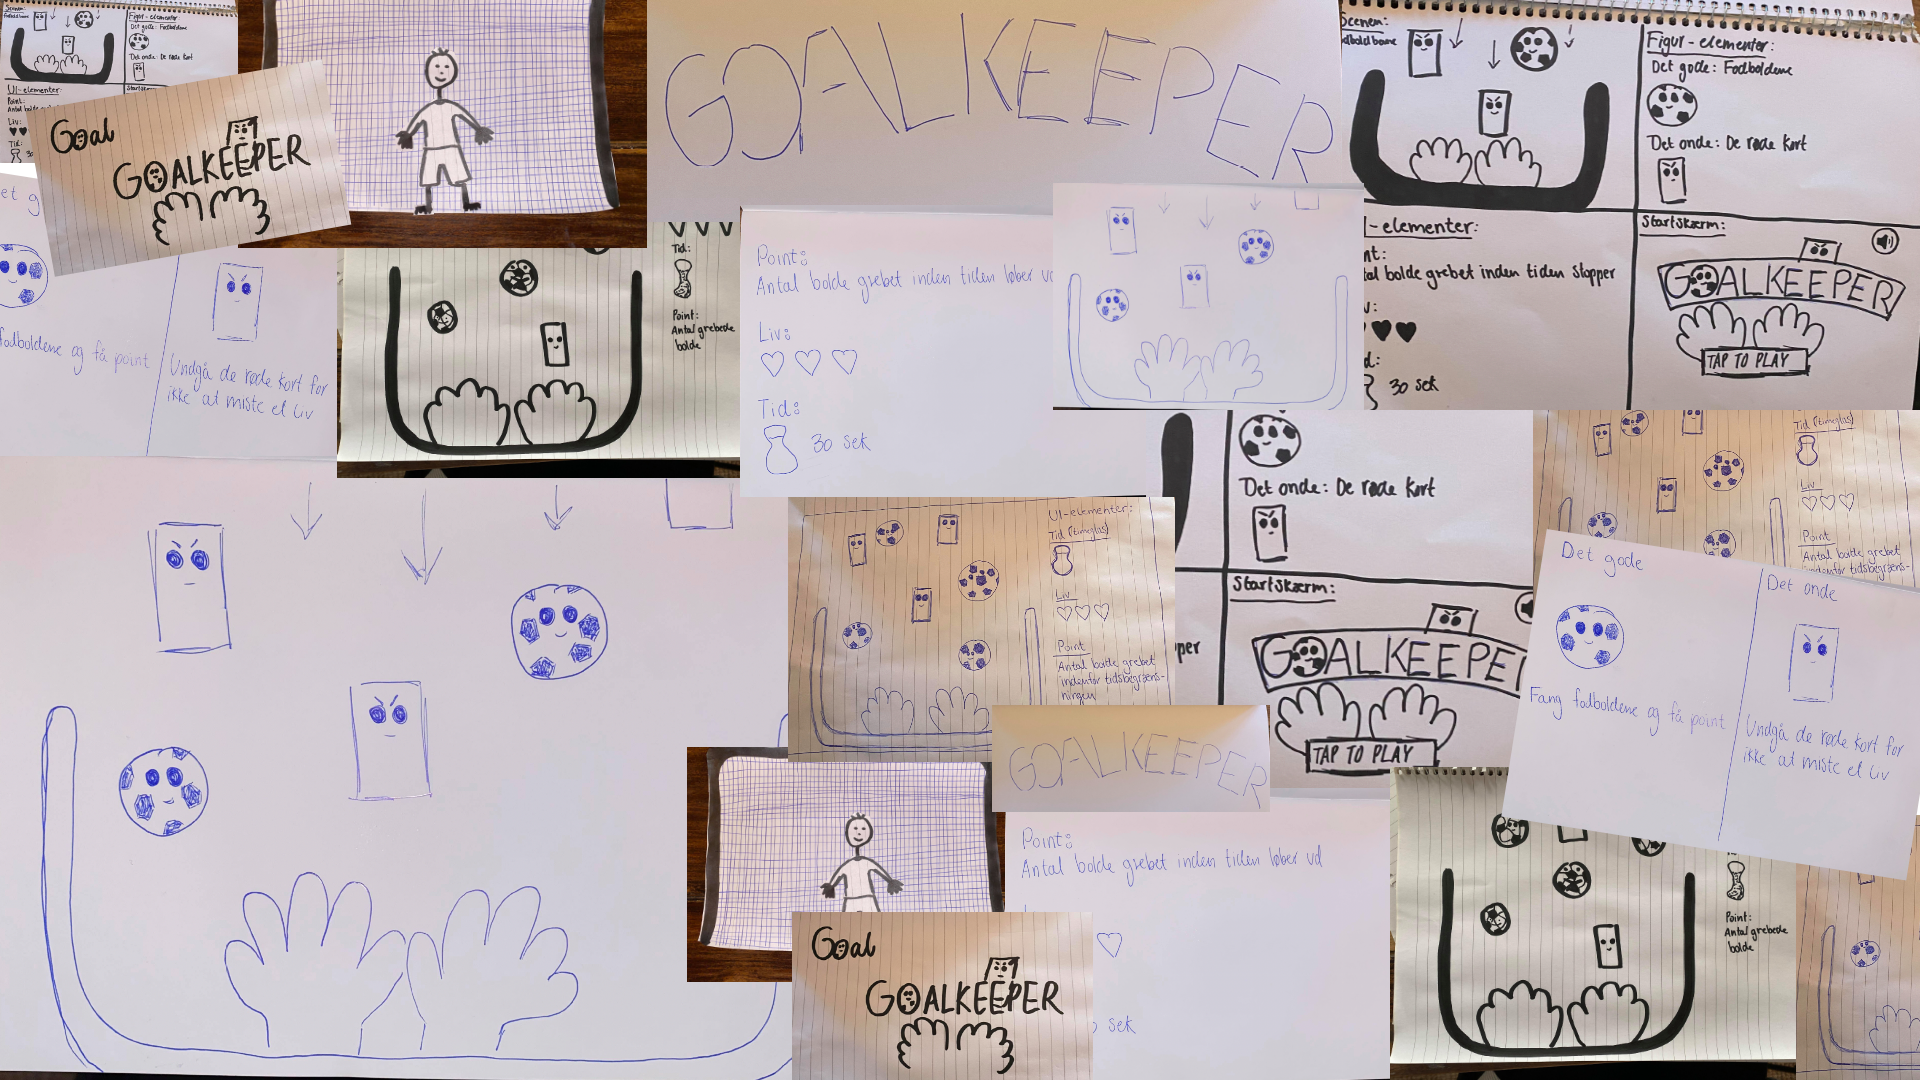 Scenen:
Fodboldbane
Figur-elementer:
Det gode: Fodboldene
Det onde: De røde kort
UI-elementer:
Point:
Liv:
Tid:
Startskærm:
Goal
GOALKEEPER
GOALKEEPER
Scenen:
Fodboldbane
Figur-elementer:
Det gode: Fodboldene
Det onde: De røde kort
-elementer:
bolde grebet inden tiden stopper
30 sek
Startskærm:
GOALKEEPER
TAP TO PLAY
fodboldene og få point
Undgå de røde kort for
ikke at miste et liv
Tid:
Point:
Antal grebede
bolde
Point:
Antal bolde grebet inden tiden løber ud
Liv:
Tid:
30 sek
UI-elementer:
Tid (timeglas)
Liv
Point
Antal bolde grebet
indenfor tidsbegræns-
ningen
Det onde: De røde kort
Startskærm:
GOALKEEPE
TAP TO PLAY
Tid (timeglas)
Liv
Point
Antal bolde grebet
indenfor tidsbegræns-
Det gode
Fang fodboldene og få point
Det onde
Undgå de røde kort for
ikke at miste et liv
GOALKEEPER
Point:
Antal bolde grebet inden tiden løber ud
sek
Goal
GOALKEEPER
Point:
Antal grebede
bolde